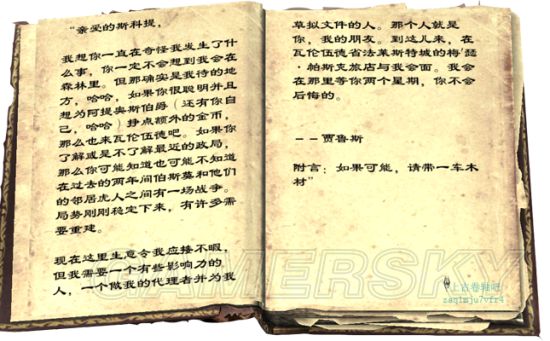 “亲爱的斯科提，
我想你一直在奇怪我发生了什
么事，你一定不会想到我会在
森林里。但那确实是我待的地
方，哈哈，如果你很聪明并且
想为阿提奥斯伯爵（还有你自
己，哈哈）挣点额外的金币，
那么也来瓦伦伍德吧。如果你
了解或是不了解最近的政局，
那么你可能知道也可能不知道
在过去的两年间伯斯莫和他们
的邻居虎人之间有一场战争。
局势刚刚稳定下来，有许多需
要重建。
现在这里生意令我应接不暇，
但我需要一个有些影响力的
人，一个做我的代理者并为我
草拟文件的人。那个人就是
你，我的朋友。到这儿来，在
瓦伦伍德省法莱斯特城的梅瑟
·帕斯克旅店与我会面。我会
在那里等你两个星期，你不会
后悔的。
－－贾鲁斯
附言：如果可能，请带一车木
材”
GAMERSKY
上古卷轴吧
zaq1mju7vfr4